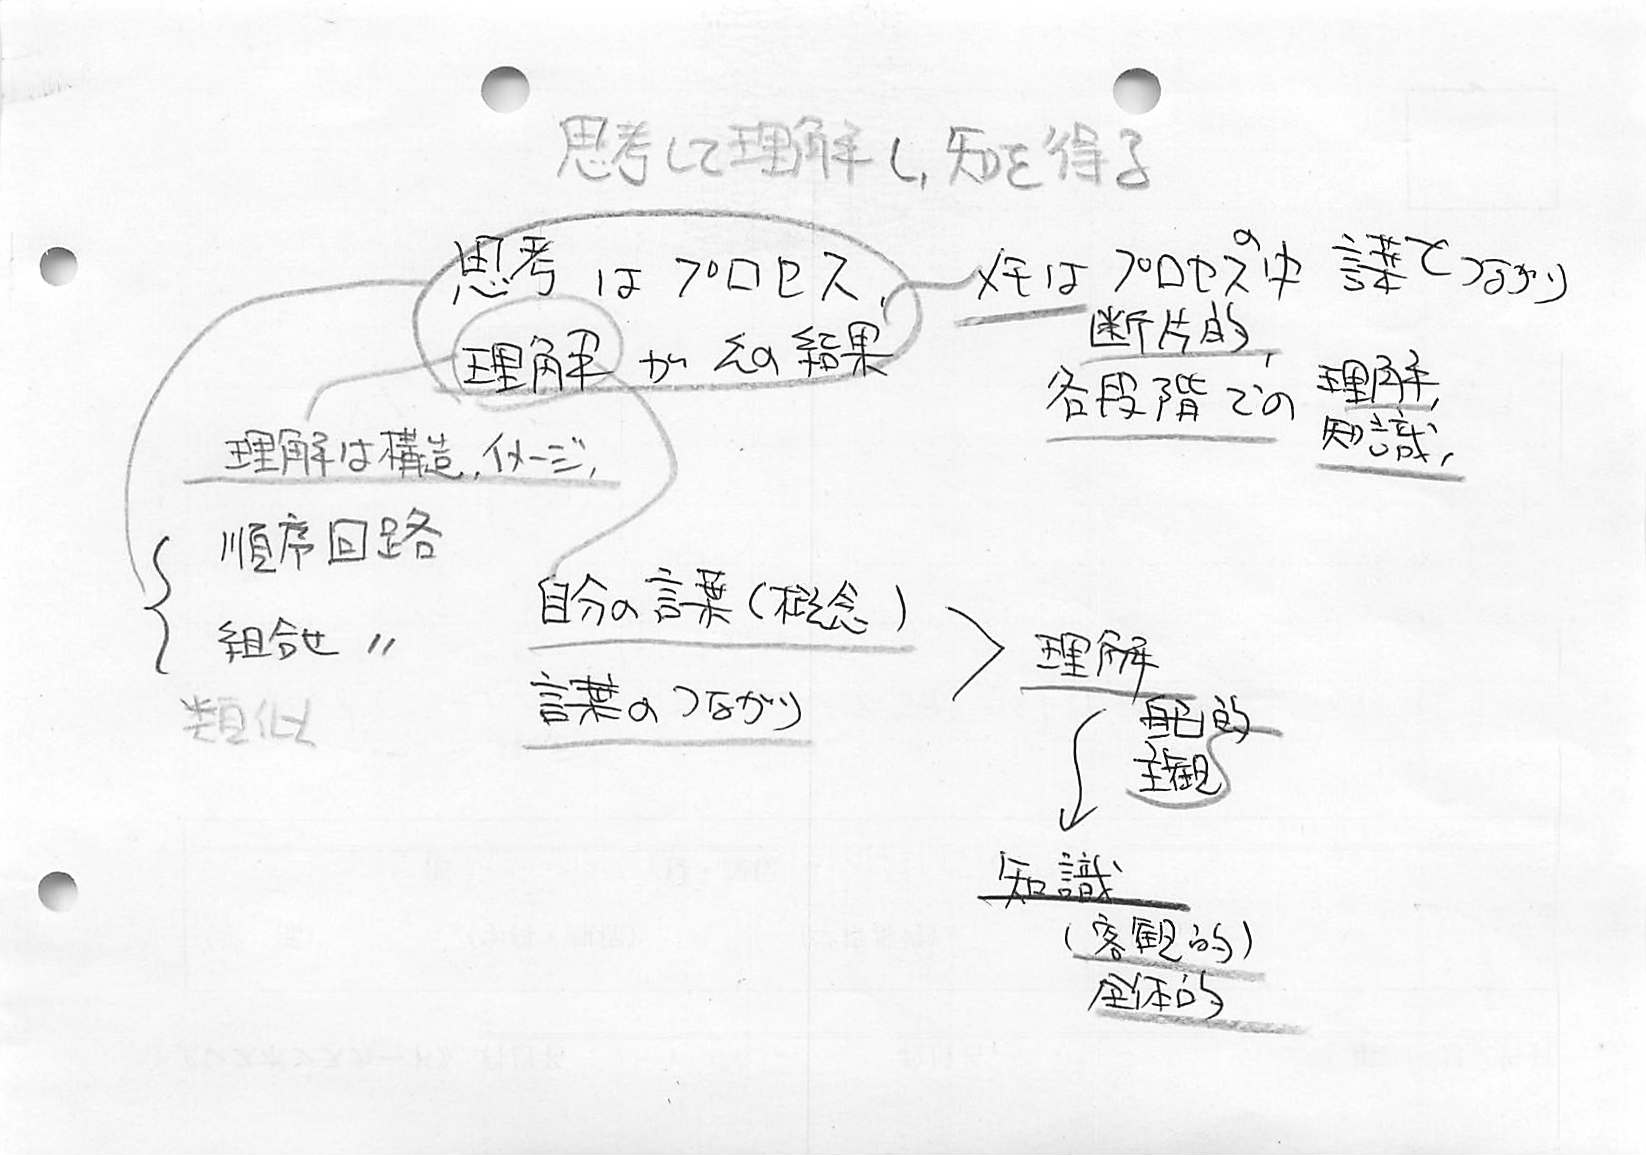 思考して理解し,知を得る
思考はプロセス,
理解がその結果
メモはプロセスの中 言葉とつながり
断片的,
各段階での理解,
知識,
理解は構造,イメージ,
順序回路
組合せ 〃
類似
自分の言葉(概念)
言葉のつながり
理解
自己的
主観
知識
(客観的)
全体的